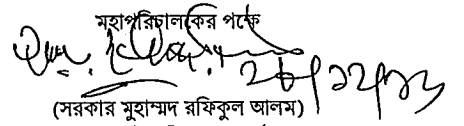 মহাপরিচালকের পক্ষে
২৮/১২/১১
(সরকার মুহাম্মদ রফিকুল আলম)